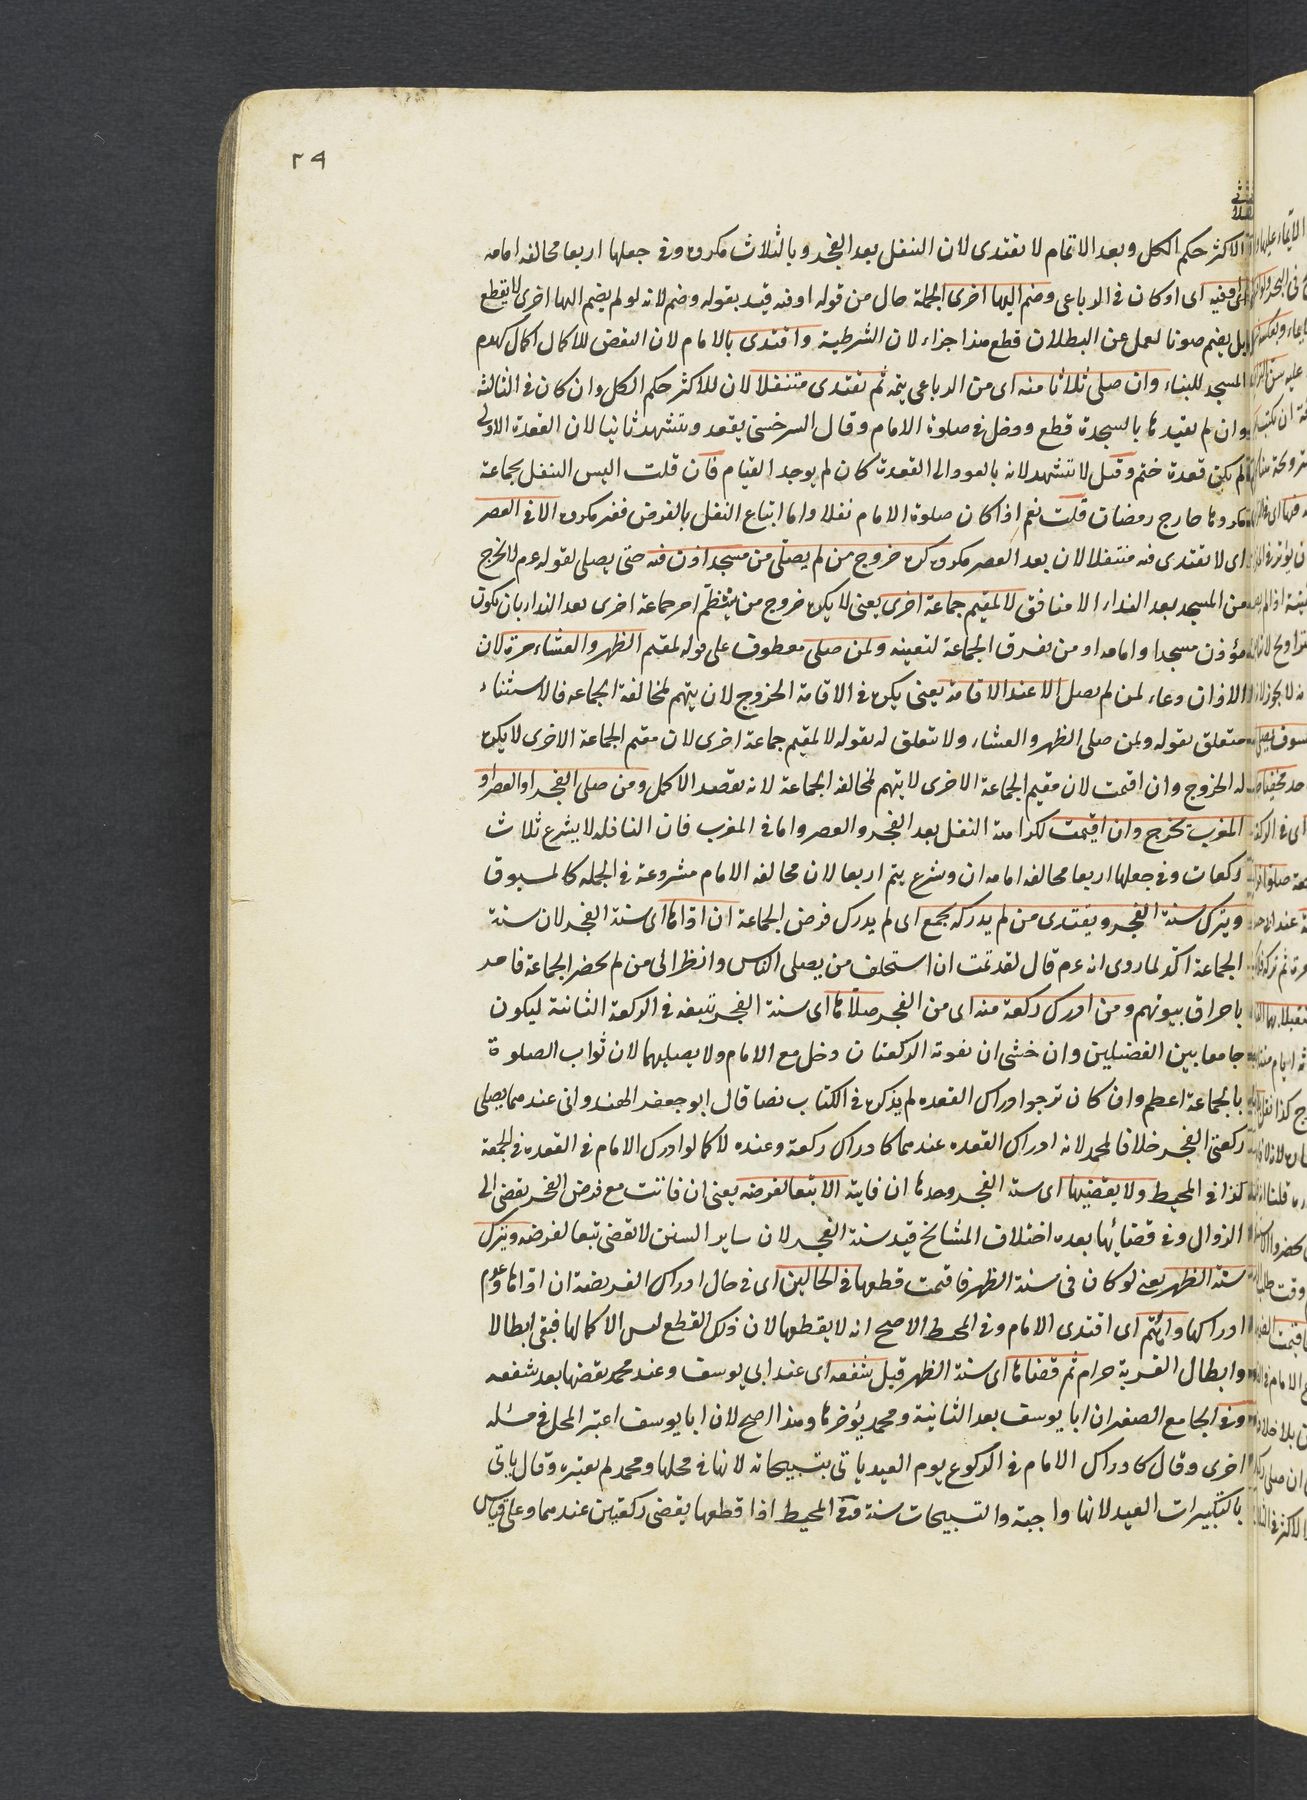 ٢٩
الاكثر حكم الكل وبعد الاتمام لا يقتدى لان النفل بعد الفجر وبالثلاث مكروه وفى جعلها اربعا مخالفة امامه
او فيه اى او كان فى الرباعى وضم اليها اخرى الجملة حال من قوله او فيه قيد بقوله وضم لانه لو لم يضم اليها اخرى لا يقطع
بل يضم صونا لعمل عن البطلان قطع هذا جزاء لان الشرطية واقتدى بالامام لان النقض للاكمال اكمال كهدم
المسجد للبناء وان صلى ثلاثا منه اى من الرباعى يتمه ثم يقتدى متنفلا لان للاكثر حكم الكل وان كان فى الثالثة
وان لم يقيدها بالسجدة قطع ودخل فى صلوة الامام وقال السرخسى يقعد ويتشهد ثانيا لان القعدة الاولى
لم يكن قعدة ختم وقيل لا يتشهد لانه بالعود الى القعدة كان لم يوجد القيام فان قلت اليس النفل بجماعة
مكروها خارج رمضان قلت نعم اذا كان صلوة الامام نفلا واما اتباع النفل بالفرض فغير مكروه الا فى العصر
اى لا يقتدى فيه متنفلا لان بعد العصر مكروه كره خروج من لم يصلى من مسجد اذن فيه حتى يصلى لقوله عم لا يخرج
من المسجد بعد النداء الا منافق لا لمقيم جماعة اخرى يعنى لا يكره خروج من ينتظم امر جماعة اخرى بعد النداء بان يكون
مؤذن مسجد او امامه او من يفرق الجماعة لتعينه ولمن صلى معطوف على قوله لمقيم الظهر والعشاء مرة لان
الاذان دعاء لمن لم يصل الا عند الاقامة يعنى يكره فى الاقامة الخروج لان يتهم لمخالفة الجماعة فالاستثناء
متعلق بقوله ولمن صلى الظهر والعشاء ولا يتعلق له بقوله لا لمقيم جماعة اخرى لان مقيم الجماعة الاخرى لا يكره
له الخروج وان اقيمت لان مقيم الجماعة الاخرى لا يتهم لمخالفة الجماعة لانه يقصد الاكمل ومن صلى الفجر او العصر او
المغرب يخرج وان اقيمت لكراهة النفل بعد الفجر والعصر واما فى المغرب فان النافلة لا يشرع ثلاث
ركعات وفى جعلها اربعا مخالفة امامه ان وشرع يتم اربعا لان مخالفة الامام مشروعة فى الجملة كالمسبوق
ويترك سنة الفجر ويقتدى من لم يدركه بجمع اى لم يدرك فرض الجماعة ان اداها اى سنة الفجر لان سنة
الجماعة اكد لما روى انه عم قال لقد هممت ان استخلف من يصلى الناس وانظر الى من لم يحضر الجماعة فامر
باحراق بيوتهم ومن ادرك ركعة منه اى من الفجر صلاها اى سنة الفجر تبقيه فى الركعة الثانية ليكون
جامعا بين الفضيلين وان خشى ان يفوته الركعتان دخل مع الامام ولا يصليهما لان ثواب الصلوة
بالجماعة اعظم وان كان ترجوا ادراك القعده لم يذكره فى الكتاب نصا قال ابو جعفر الهندوانى عندهما يصلى
ركعتى الفجر خلافا لمحمد لانه ادراك القعده عندهما كادراك ركعة وعنده لا كما لو ادرك الامام فى القعده فى الجمعة
كذا فى المحيط ولا يقضيها اى سنة الفجر وحدها ان فاتته الا تبعا لفرضه يعنى ان فاتت مع فرض الفجر يقضى الى
الزوال وفى قضائها بعده اختلاف المشايخ قيد سنة الفجر لان سائر السنن لا تقضى تبعا لفرضه ويترك
سنة الظهر يعنى لو كان فى سنة الظهر فاقيمت قطعها فى الحالين اى فى حال ادراك الفريضة ان اداها وعدم
ادراكها وائتم اى اقتدى الامام وفى المحيط الاصح انه لا يقطعها لان ذلك القطع ليس الاكمالها فبقى ابطالا
وابطال القربة حرام ثم قضاها اى سنة الظهر قبل شفعه اى عند ابى يوسف وعند محمد يقضها بعد شفعه
وفى الجامع الصغير ان ابا يوسف بعد الثانية ومحمد يؤخرها وهذا اصح لان ابا يوسف اعتبر المحل فى مسئله
اخرى وقال كادراك الامام فى الركوع يوم العيد ياتى بتسبيحاته لانها فى محلها ومحمد لم يعتبره وقال ياتى
بالتكبيرات العيد لانها واجبة والتسبيحات سنة وفى المحيط اذا قطعها يقضى ركعتين عندهما وعلى قياس